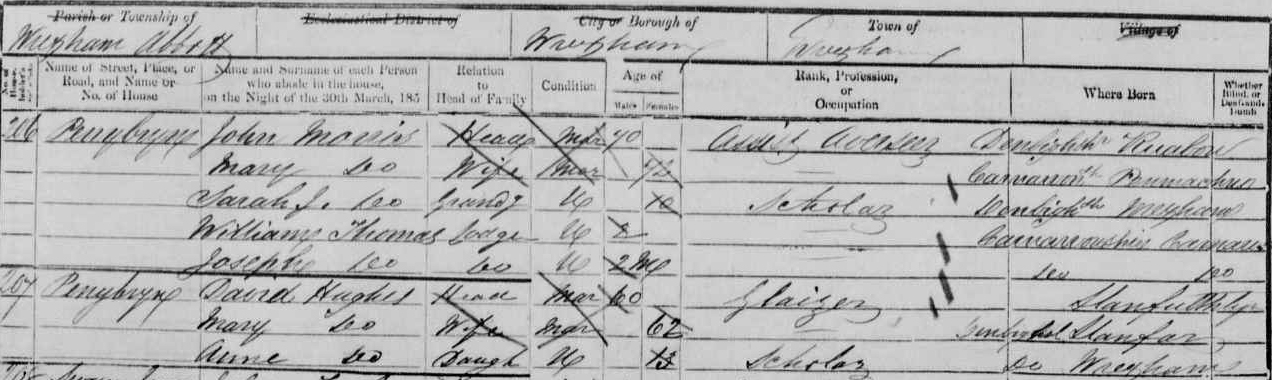 Parish or Township of Ecclesiastical District of City or Borough of Town of Village of
Wrexham Abbott Wrexham Wrexham
Name of Street, Place, or Road, and Name or No. of House Name and Surname of each Person who abode in the house, on the Night of the 30th March, 185 Relation to Head of Family Condition Age of Males Females Rank, Profession, or Occupation Where Born Whether Blind, or Deaf-and-Dumb
206 Penybryn John Morris Head Mar 70 Assist Overseer Denbighsh Ruabon
Mary Do Wife Mar 73 Carnarvonsh Penmachno
Sarah J. Do Grandd U 10 Scholar Denbighsh Wrexham
William Thomas Lodger U Carnarvonshire
Joseph Do Do U 2 M Do Do
207 Penybryn David Hughes Head Mar 60 Glaizer
Mary Do Wife Mar 62
Anne Do Daugh U 13 Scholar Do Wrexham